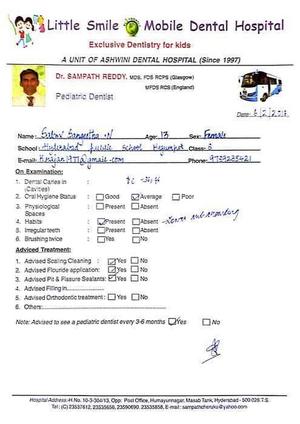 Little Smile Mobile Dental Hospital
Exclusive Dentistry for kids
A UNIT OF ASHWINI DENTAL HOSPITAL (Since 1997)
Dr. SAMPATH REDDY. MDS, FDS RCPS (Glasgow)
MFDS RCS (England)
Pediatric Dentist
Date:
Name: Sangeetha .N Age: 13 Sex: Female
School: Hyderabad Public School Begumpet Class:
E-mail: Phone:
On Examination:
1. Dental Caries in (Cavities) :
2. Oral Hygiene Status : Good Average Poor
3. Physiological Spaces : Present Absent
4. Habits : Present Absent
5. Irregular teeth : Present Absent
6. Brushing twice : Yes No
Adviced Treatment:
1. Advised Scaling Cleaning : Yes No
2. Advised Flouride application: Yes No
3. Advised Pit & Fissure Sealants: Yes No
4. Advised Filling in
5. Advised Orthodontic treatment : Yes No
6. Others:
Note: Advised to see a pediatric dentist every 3-6 months Yes No
Hospital Address: H.No. 10-3-304/13, Opp: Post Office, Humayunnagar, Masab Tank, Hyderabad - 500 028.T.S.
Tel: (C) 23537612, 23535658, 23590690, 23535858, E-mail: sampathcheruku@yahoo.com